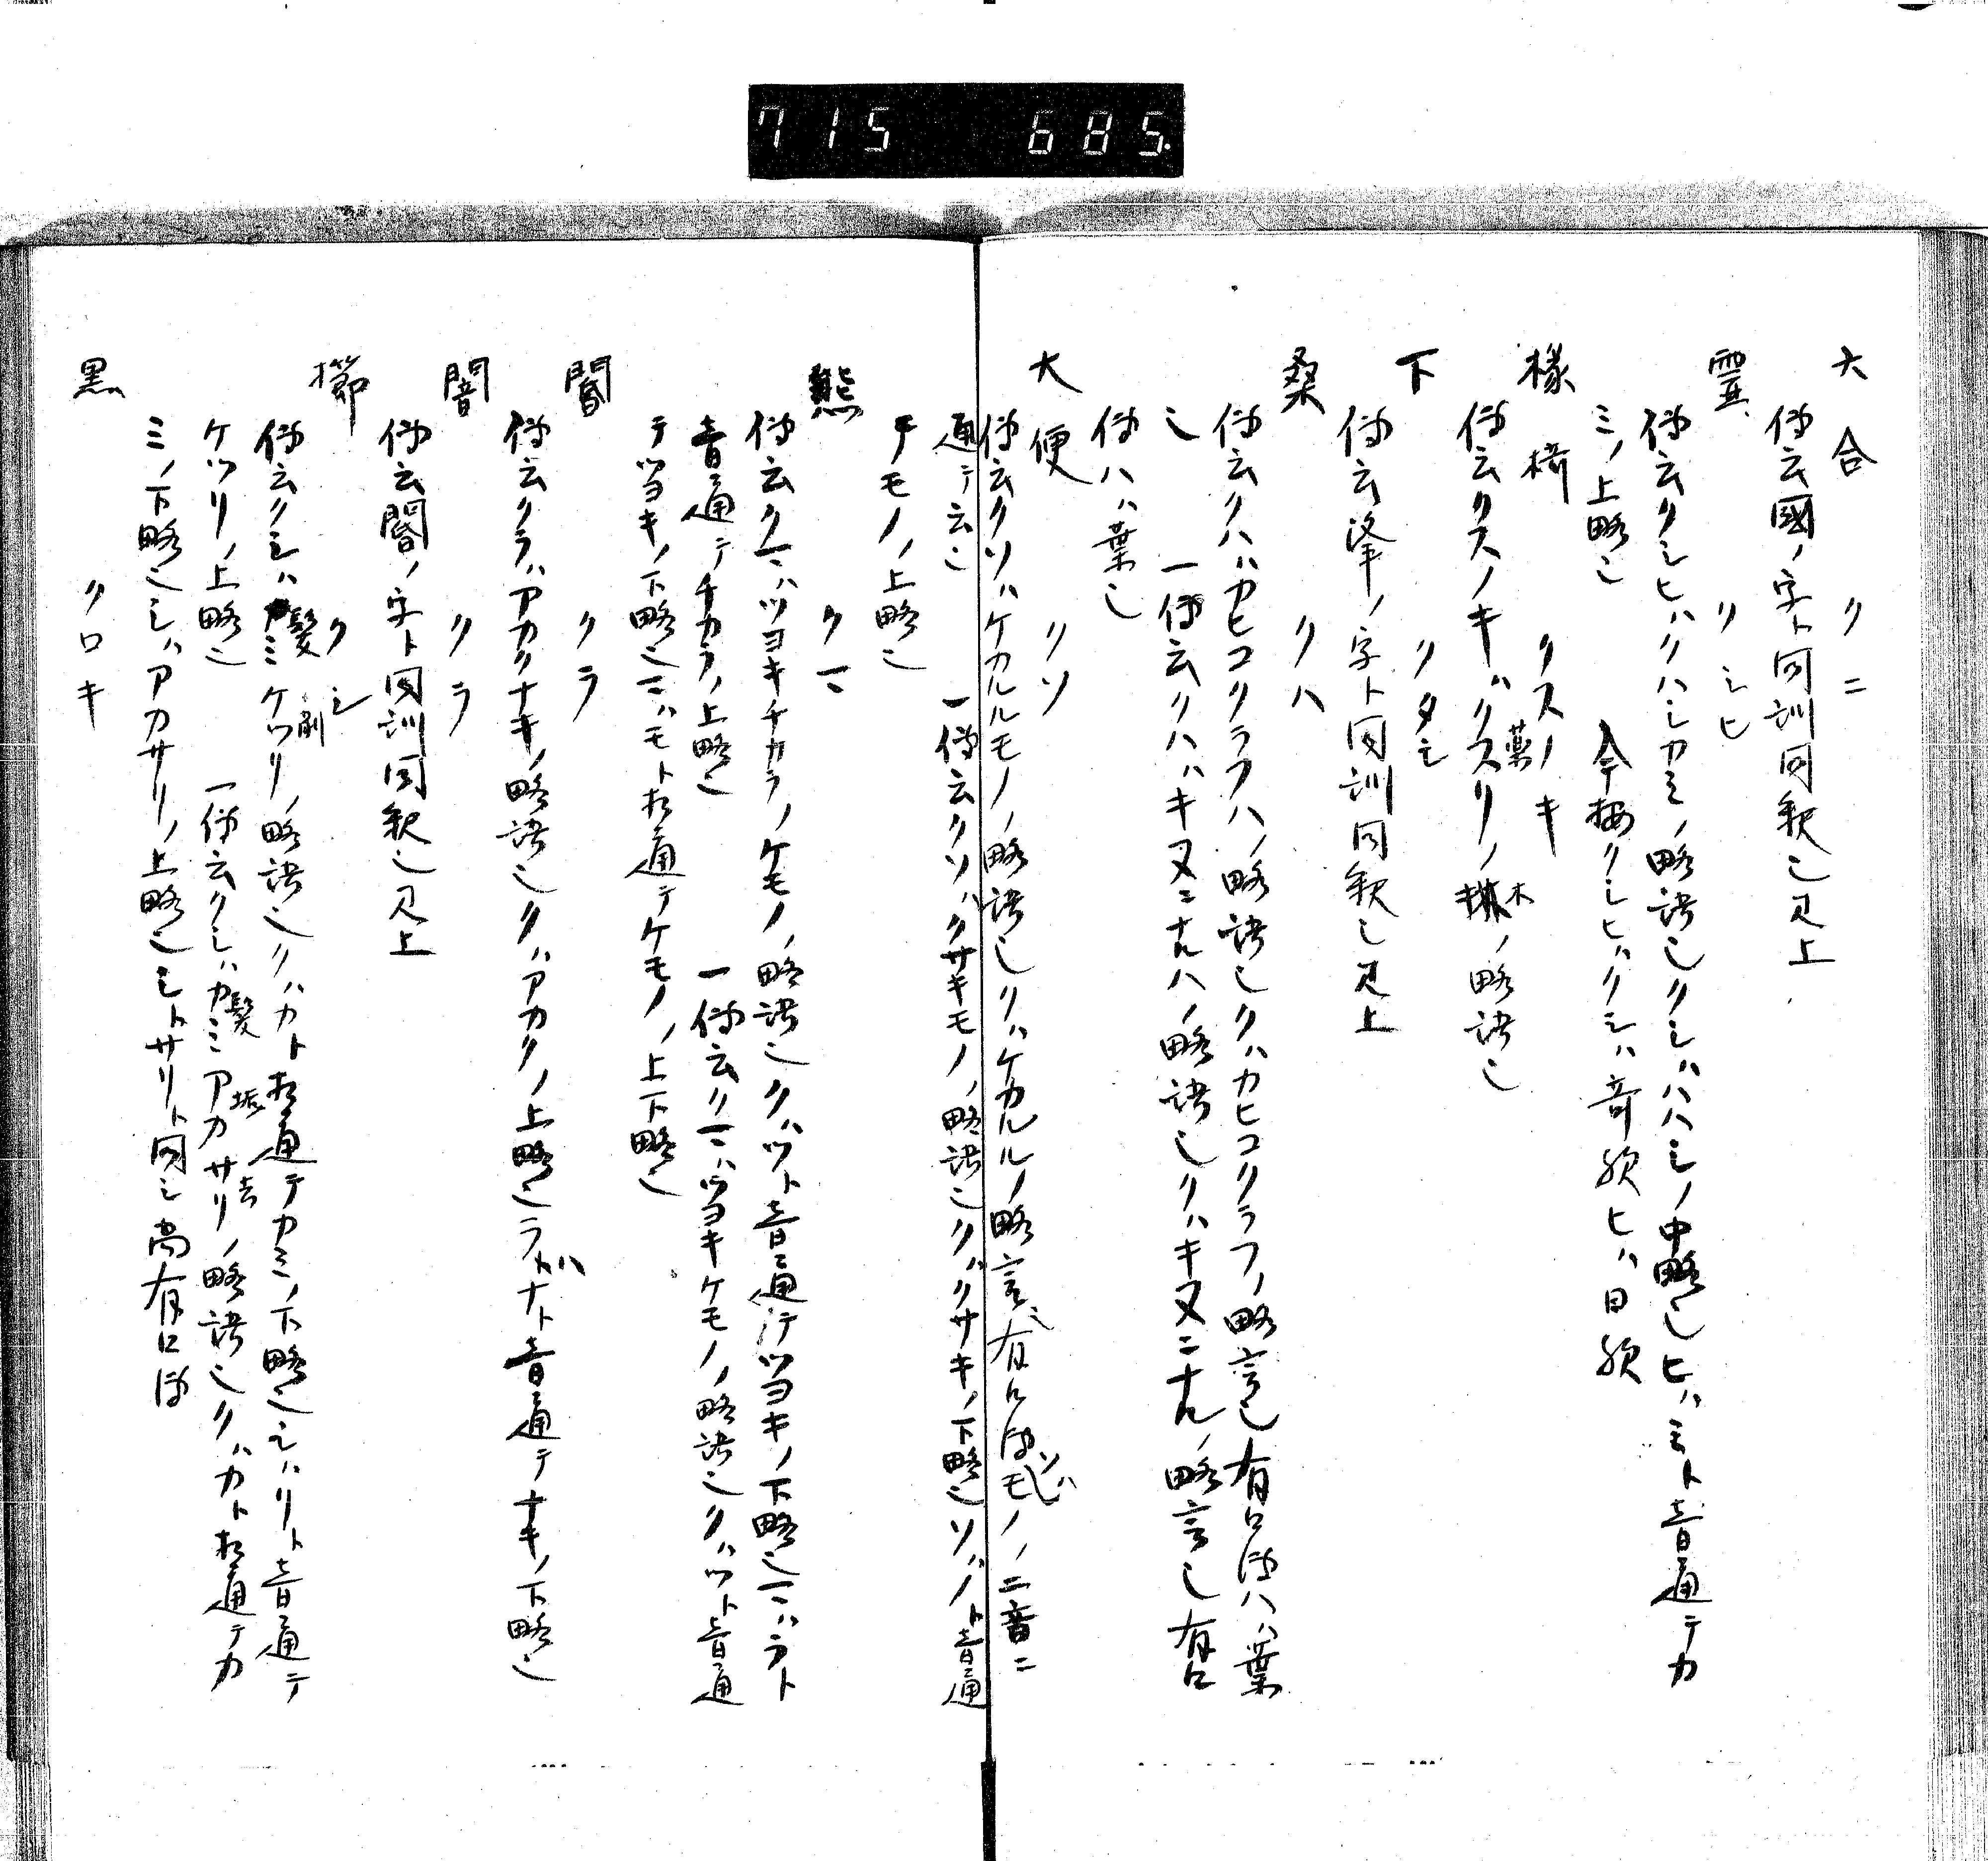 715 685
大合 クニ
傳云國ノ字ト同訓同釈也見上
靈 クシヒ
傳云クシヒハクハシカミノ略語也クシハハハシノ中略也ヒハミト音通テカ
ミノ上略也 今按クシヒハクシハ奇歟ヒハ日歟
樟 クスノキ
傳云クスノキハクスリノ木ノ略語也
下 クタシ
傳云降ノ字ト同訓同釈也見上
桑 クハ
傳云クハハカヒコクラフハノ略語也クハカヒコクラフノ略言也有口傳ハハ葉
也 一傳云クハハキヌニナルハノ略語也クハキヌニナルノ略言也有口
傳ハハ葉也
大便 クソ
傳云クソハケカルルモノノ略語也クハケカルルノ略言也有口傳ソハモノノ二音ニ
通テ云也 一傳云クソハクサキモノノ略語也クハクサキノ下略也ソハノト音通
テモノノ上略也
熊 クマ
傳云クマハツヨキチカラノケモノノ略語也クハツト音通テツヨキノ下略也マハラト
音通テチカラノ上略也 一傳云クマハツヨキケモノノ略語也クハツト音通
テツヨキノ下略也マハモト相通テケモノノ上下略也
閽 クラ
傳云クラハアカクナキノ略語也クハアカクノ上略也ラハナト音通テナキノ下略也
闇 クラ
傳云閽ノ字ト同訓同釈也見上
櫛 クシ
傳云クシハ髪ミケツリ削ノ略語也クハカト相通テカミノ下略也シハリト音通テ
ケツリノ上略也 一傳云クシハカミ髪アカ垢サリ去ノ略語也クハカト相通テカ
ミノ下略也シハアカサリノ上略也シトサリト同シ尚有口傳
黒 クロキ